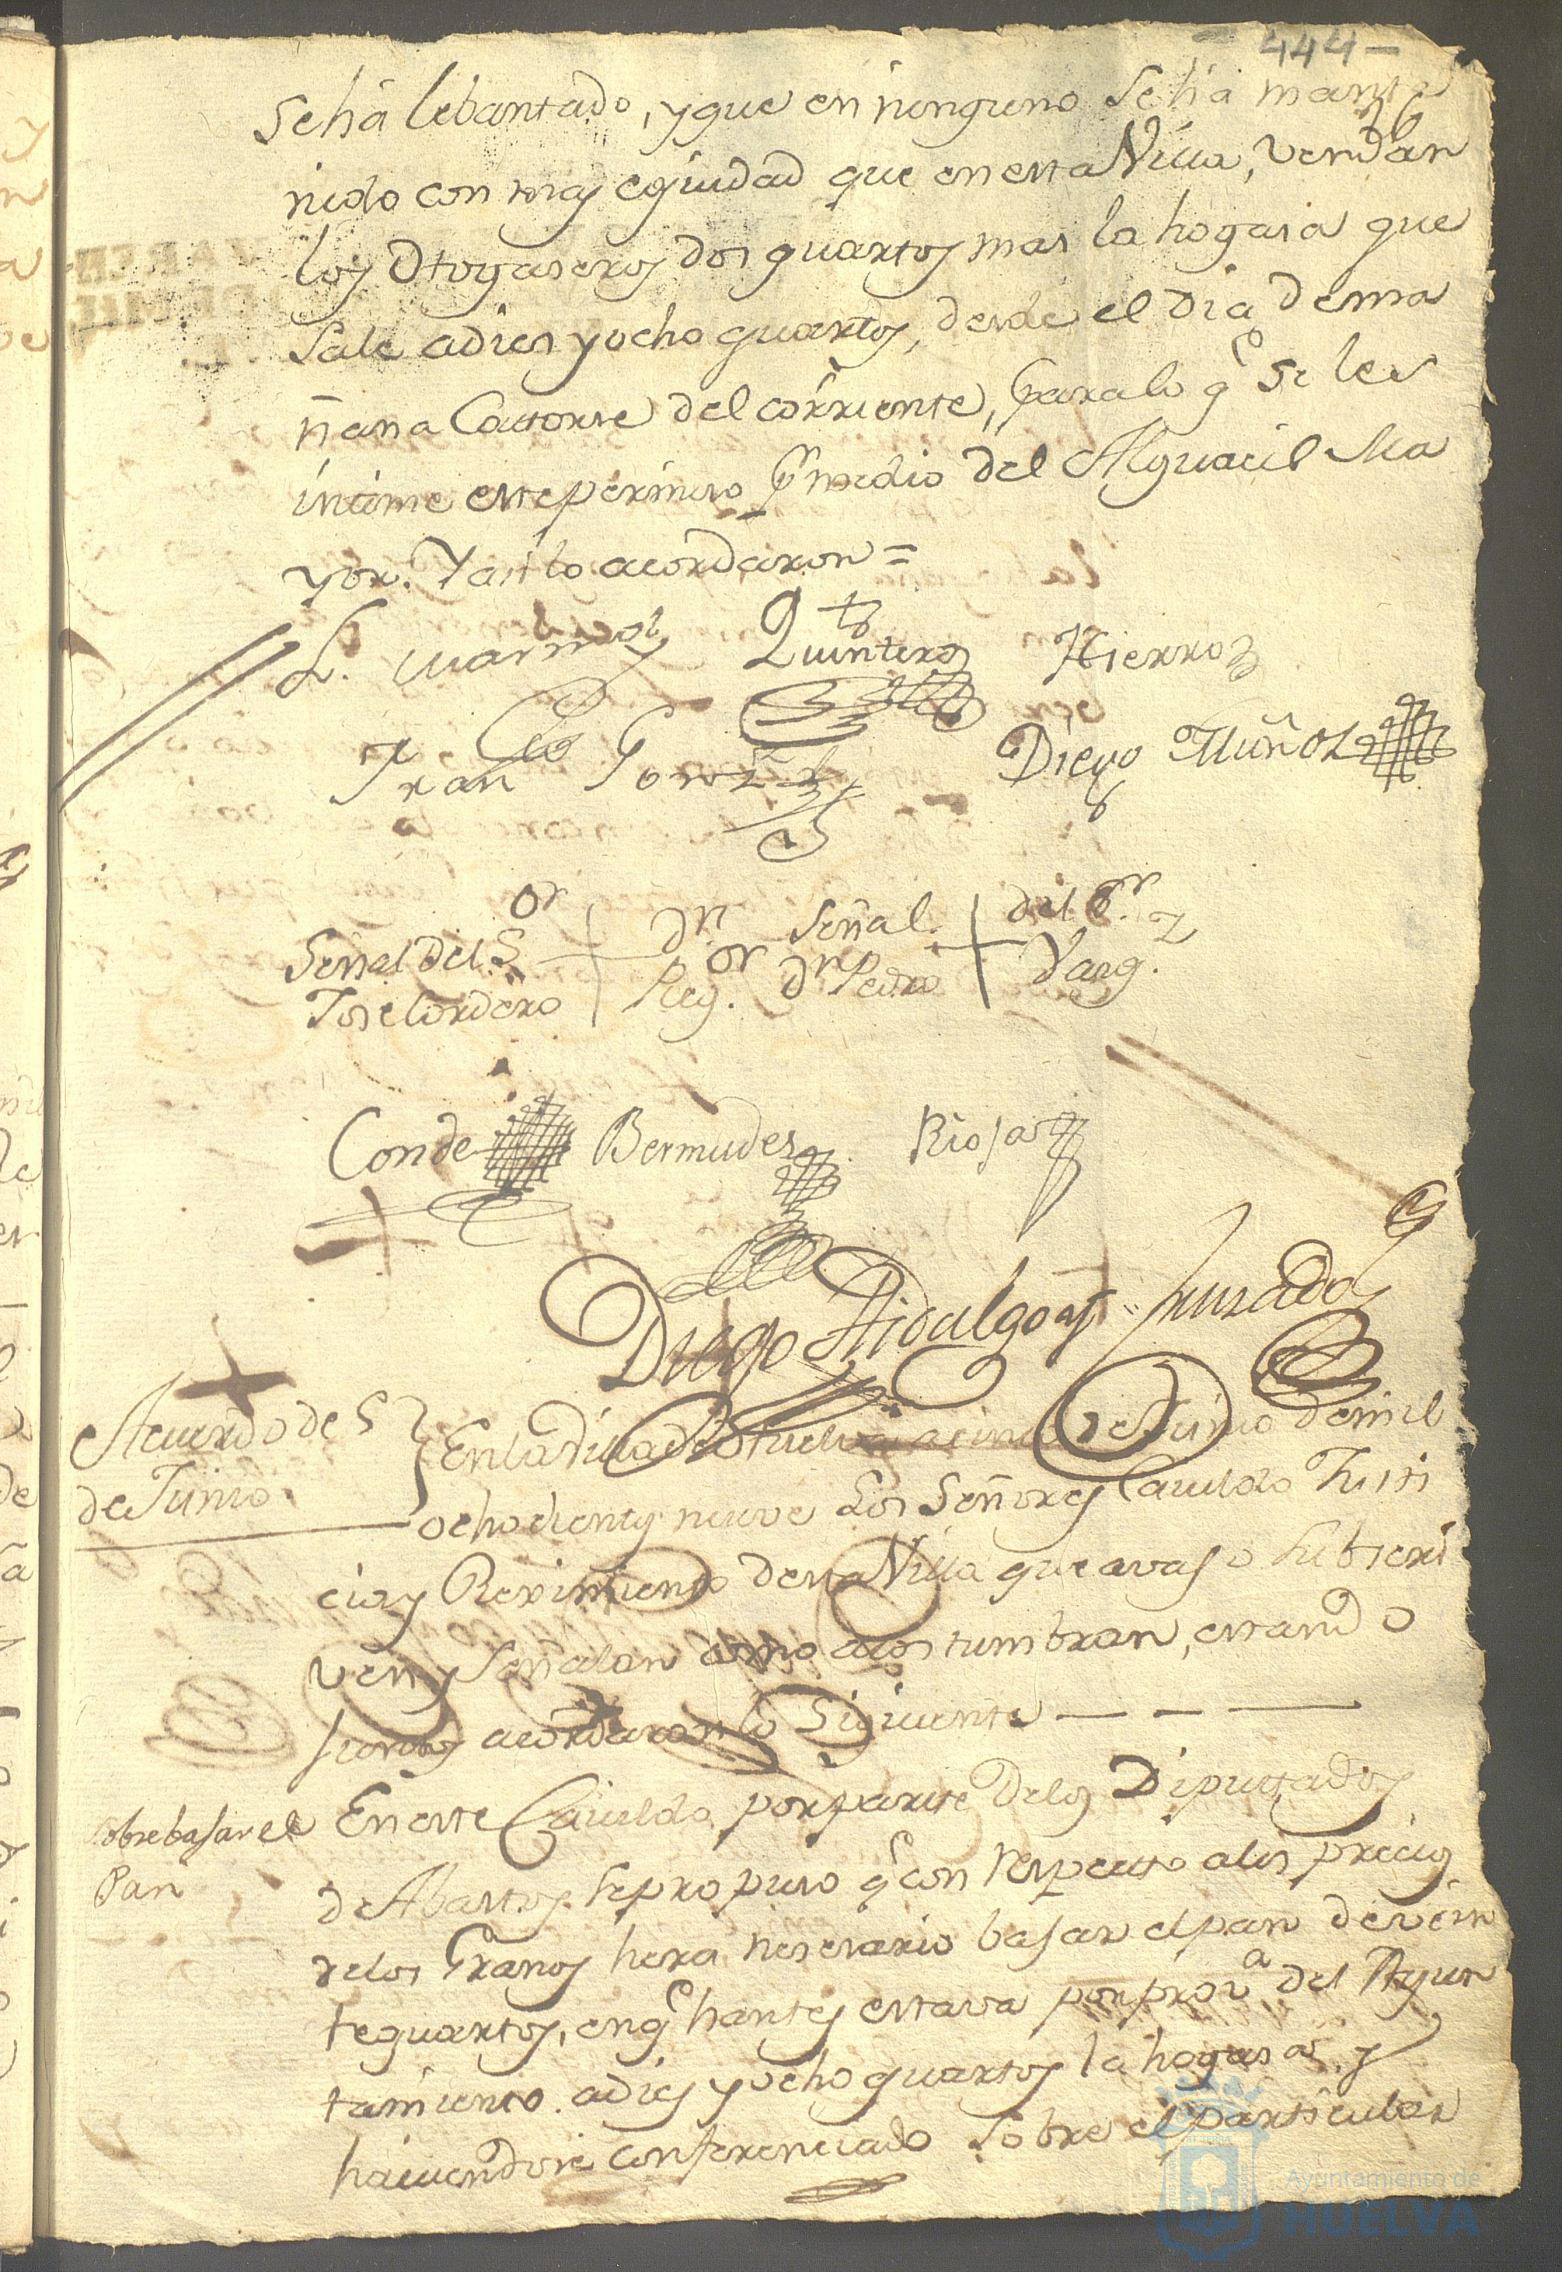 444-
36
Se há lebantado, y que en ninguno Se há mante
nido con mas eqiudad que en esta Villa, Vendan
los Ohogaseros dos quartos mas la hogasa que
Sale adies y ocho quartos, desde el dia dema
ñana Catorse del corriente, para lo q.e se les
intime este permiso p.r medio del Alguacil Ma
yor. Y asi lo acordaron =
L. Marmol Quintero Hierro
Fran.co Gonz.z Diego Muñoz
Señal del S.or + D.n Señal + del S.or
Jose Cordero Reg.or d.n Pedro Varg.z
Conde Bermudes Riojas
Diego Hidalgo y Jurado
Acuerdo de 5
de Junio
En la Villa de Huelva a cinco de Junio de mil
ochocientos nueve Los Señores Cavildo Justi
cia y Reximiento de esta Villa que avajo Subscri
ven y Señalan como acostumbran, estando
juntos acordaron lo Siguiente - - -
Sobre bajar el
Pan
En este Cavildo por parte de los Diputtados
de Abastos Se propuso q.e con respecto a los precios
de los Granos hera nesesario bajar el pan de vein
te quartos, en q.e hantes estava por prov.a del Ayun
tamiento. adies y ocho quartos la hogasa. y
haviendose conferenciado Sobre el particular
Ayuntamiento de
HUELVA